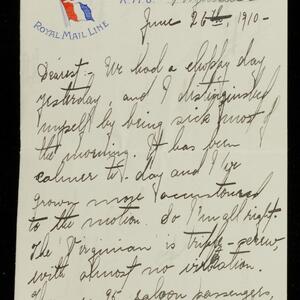 ROYAL MAIL LINE
R.M.S.
June 26th 1910-
Dearest:- We had a choppy day
yesterday, and I distinguished
myself by being sick most of
the morning. It has been
calmer to-day and I've
grown more accustomed
to the motion. So I'm all right.
The 'Virginian' is triple-screw,
with almost no vibration.
95 saloon passengers,